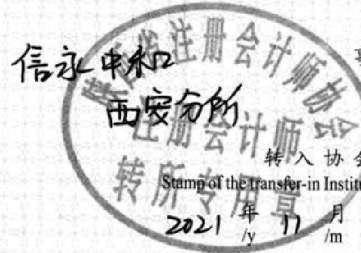 信永中和
西安分所
陕西省注册会计师协会
注册会计师
转所专用章
转入协会
Stamp of the transfer-in Institu
2021 年 11 月
/y /m